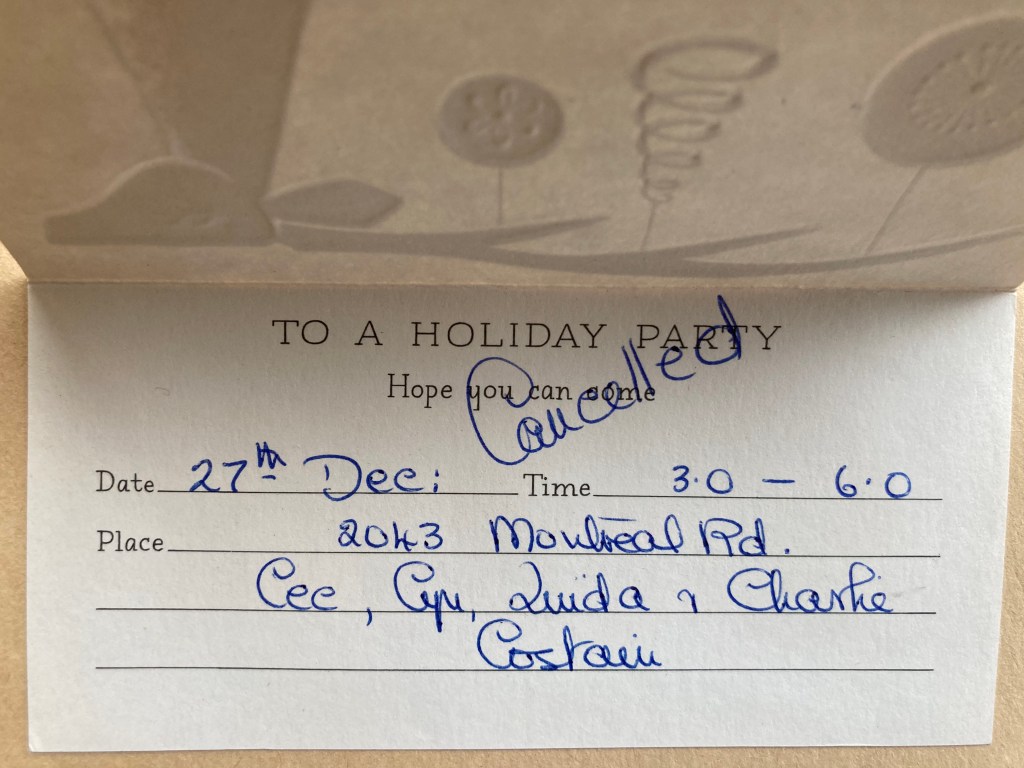 TO A HOLIDAY PARTY
Hope you can come
Cancelled
Date 27th Dec: Time 3.0 — 6.0
Place 2043 Montreal Rd.
Cee, Cyn, Linda & Charlie
Costain